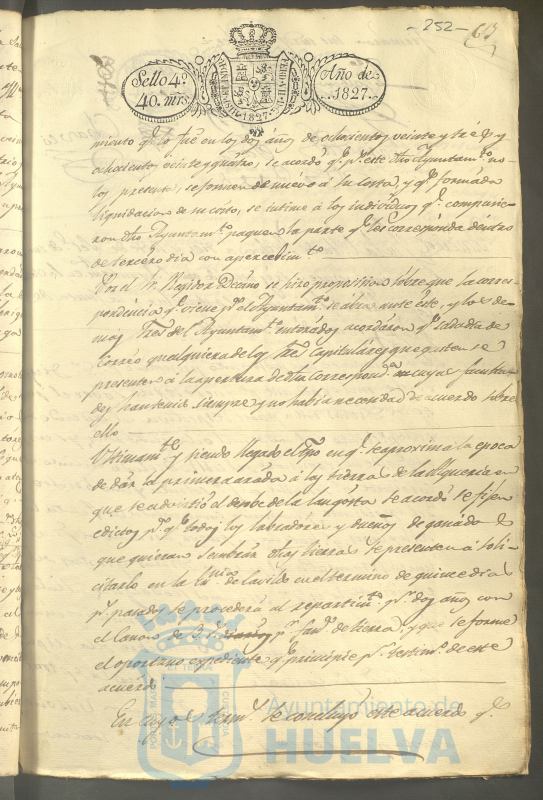 -252-
Sello 4º
40. mrs.
Año de
1827.
1827
miento qe. lo fue en los dos años de ochocientos veinte y tres y
ochocientos veinte y quatro, se acordó qe. pr. este Ayuntamto. no
los presente, se formen de nuevo á su costa, y qe. formada
liquidacion de su costo, se intime á los individuos qe. compusie-
ron dho Ayuntamto. paguen la parte qe. les corresponda dentro
de tercero dia con apercebimto.
Por el Sr. Regidor Decano se hizo proposicion sobre que la corres-
pondencia qe. viene pr. el Ayuntamto. se abra ante éste, y los de-
mas Sres. del Ayuntamto. enterados acordaron qe. cada dia de
Correo qualquiera de los Sres. Capitulares que gusten se
presenten á la apertura de dha correspondª. cuyas faculta-
des han tenido siempre y no habia necesidad de acuerdo sobre
ello
Ultimamte. y siendo llegado el tpo en qe. se aproxima la epoca
de dár la primera arada á las tierras de la Alqueria en
que se advirtió el desobe de la langosta se acordó se fijen
edictos pa. qe. todos los labradores y dueños de ganado
que quieran sembrár dhas tierras se presenten á soli-
citarlo en la de la villa en el termino de quince dias
pr. pasados se procederá al repartimto. pr. dos años con
el canon de 3 rs. pr. fanª. de tierra, y que se forme
el oportuno expediente qe. principie pr. testimº. de este
acuerdo
En cuyos termos. se concluyó este acuerdo qe.
Ayuntamiento de
HUELVA